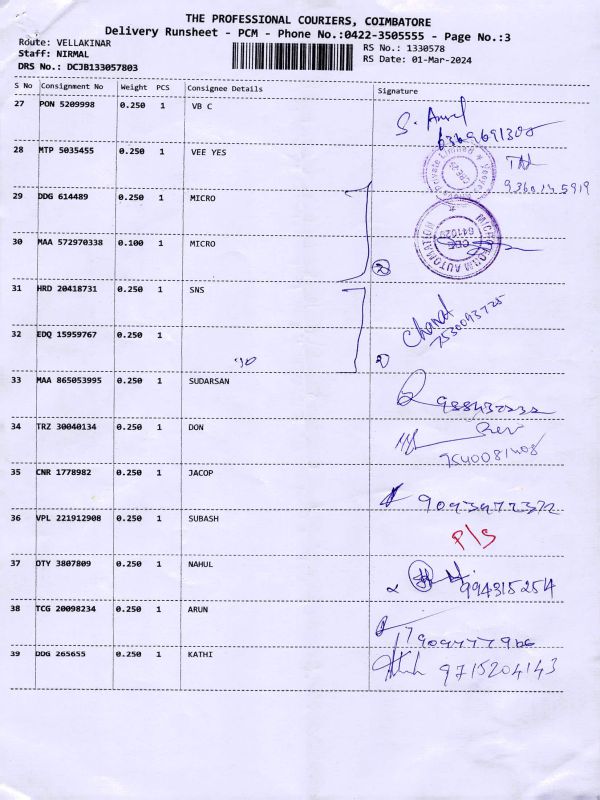 THE PROFESSIONAL COURIERS, COIMBATORE
Delivery Runsheet - PCM - Phone No.:0422-3505555 - Page No.:3
Route: VELLAKINAR
Staff: NIRMAL
DRS No.: DCJB133057803
RS No.: 1330578
RS Date: 01-Mar-2024
S No Consignment No Weight PCS Consignee Details Signature
27 PON 5209998 0.250 1 VB C
28 MTP 5035455 0.250 1 VEE YES
9360145919
29 DDG 614489 0.250 1 MICRO
30 MAA 572970338 0.100 1 MICRO
MICROFORM AUTOMATION
CBE
31 HRD 20418731 0.250 1 SNS
7530093725
32 EDQ 15959767 0.250 1
33 MAA 865053995 0.250 1 SUDARSAN
34 TRZ 30040134 0.250 1 DON
35 CNR 1778982 0.250 1 JACOP
9093972372
36 VPL 221912908 0.250 1 SUBASH
P/S
37 OTY 3807809 0.250 1 NAHUL
9943152514
38 TCG 20098234 0.250 1 ARUN
39 DDG 265655 0.250 1 KATHI
9715204143